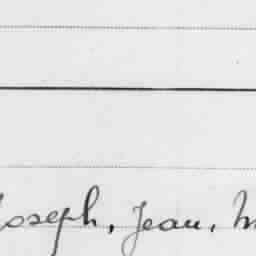 Joseph, Jean, M